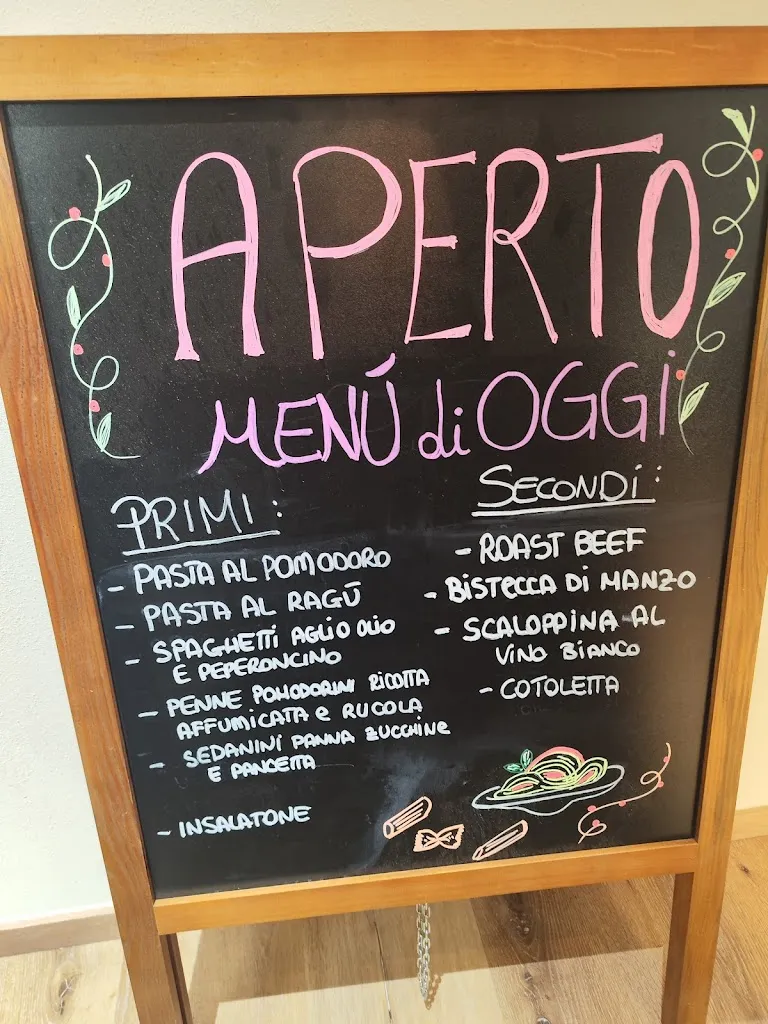 APERTO
MENÚ di OGGI
PRIMI:
- PASTA AL POMODORO
- PASTA AL RAGÚ
- SPAGHETTI AGLIO OLIO
E PEPERONCINO
- PENNE POMODORINI RICOTTA
AFFUMICATA e RUCOLA
- SEDANINI PANNA ZUCCHINE
E PANCETTA
- INSALATONE
SECONDI:
- ROAST BEEF
- BISTECCA DI MANZO
- SCALOPPINA AL
VINO BIANCO
- COTOLETTA